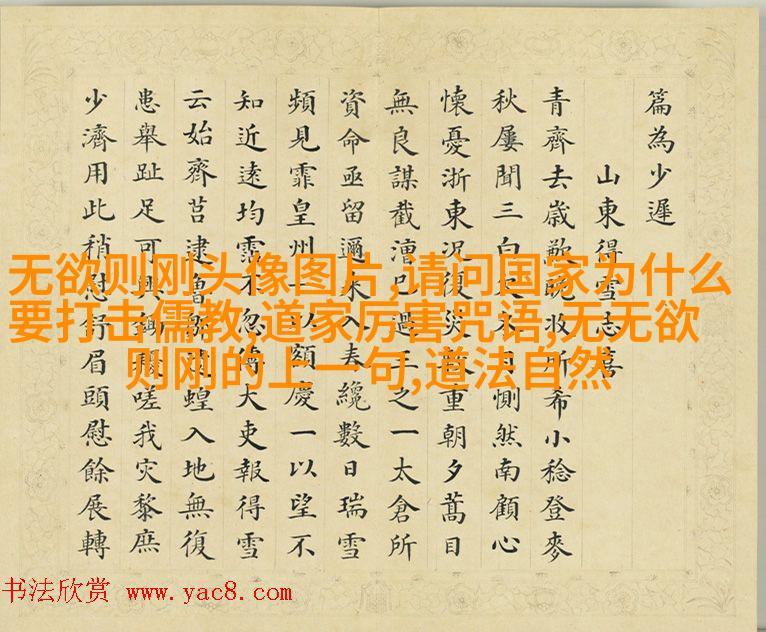 篇為少遲
山東得雪志喜
青齊去歲歉晚收所希小稔登麥
秋屢聞三白惻然南顧心
懷憂浙東況復災重朝夕蒿目
無良謀截漕已過三之一太倉所
資命亟留邇來入春纔數日瑞雪
頻見霏皇州一以額慶一以望不
知近遠均霑不忽大吏報得雪
云始齊莒逮魯遺蝗入地無復
患舉趾足可興嗟我災黎庶
少濟用此稍慰舒眉頭慰餘展轉
无欲则刚头像图片,请问国家为什么
要打击儒教,道家厉害咒语,无无欲
则刚的上一句,道法自然
书法欣赏 www.yac8.com